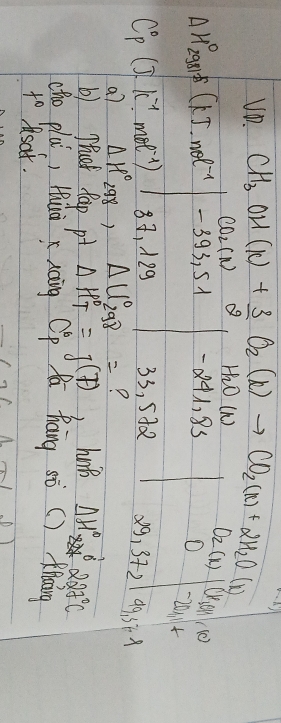 VD. CH₃OH (k) + 3/2 O₂ (k) → CO₂ (k) + 2H₂O (k)
CO₂ (k) H₂O (k) O₂ (k) CH₃OH (k)
ΔH°₂₉₈ (kJ.mol⁻¹) -393,51 -241,83 0
C°p (J.k⁻¹.mol⁻¹) 37,129 33,572 29,372
a) ΔH°₂₉₈, ΔU°₂₉₈ = ?
b) Thiết lập pt ΔH°T = f(T), tính ΔH° ở 227°C
cho p/ứ, thừa x rằng C°p là hằng số () khoảng
t° ksát.